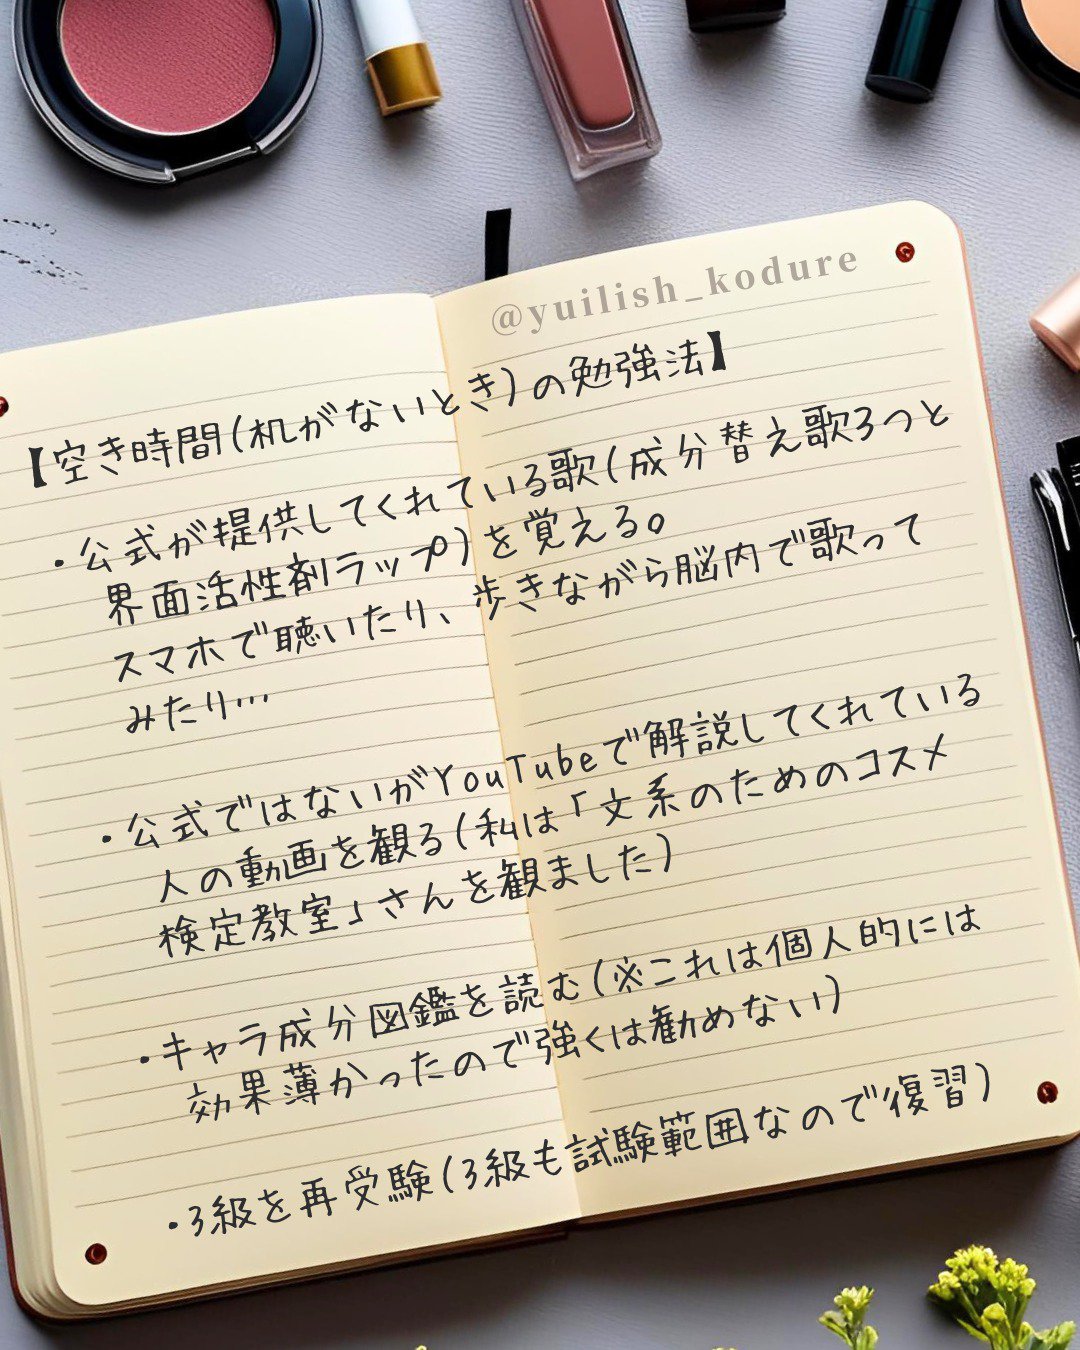 @yuilish_kodure
【空き時間(机がないとき)の勉強法】
・公式が提供してくれている歌(成分替え歌3つと
界面活性剤ラップ)を覚える。
スマホで聴いたり、歩きながら脳内で歌って
みたり…
・公式ではないがYouTubeで解説してくれている
人の動画を観る(私は「文系のためのコスメ
検定教室」さんを観ました)
・キャラ成分図鑑を読む(※これは個人的には
効果薄かったので強くは勧めない)
・3級を再受験(3級も試験範囲なので復習)